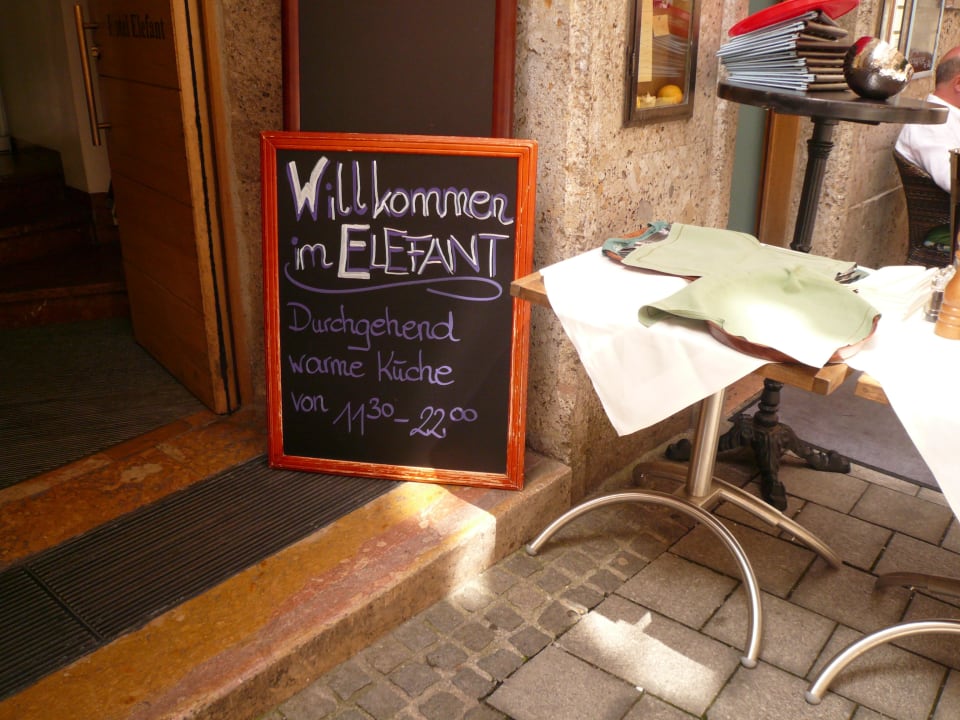 Hotel Elefant
Willkommen
im ELEFANT
Durchgehend
warme Küche
von 11³⁰-22,⁰⁰